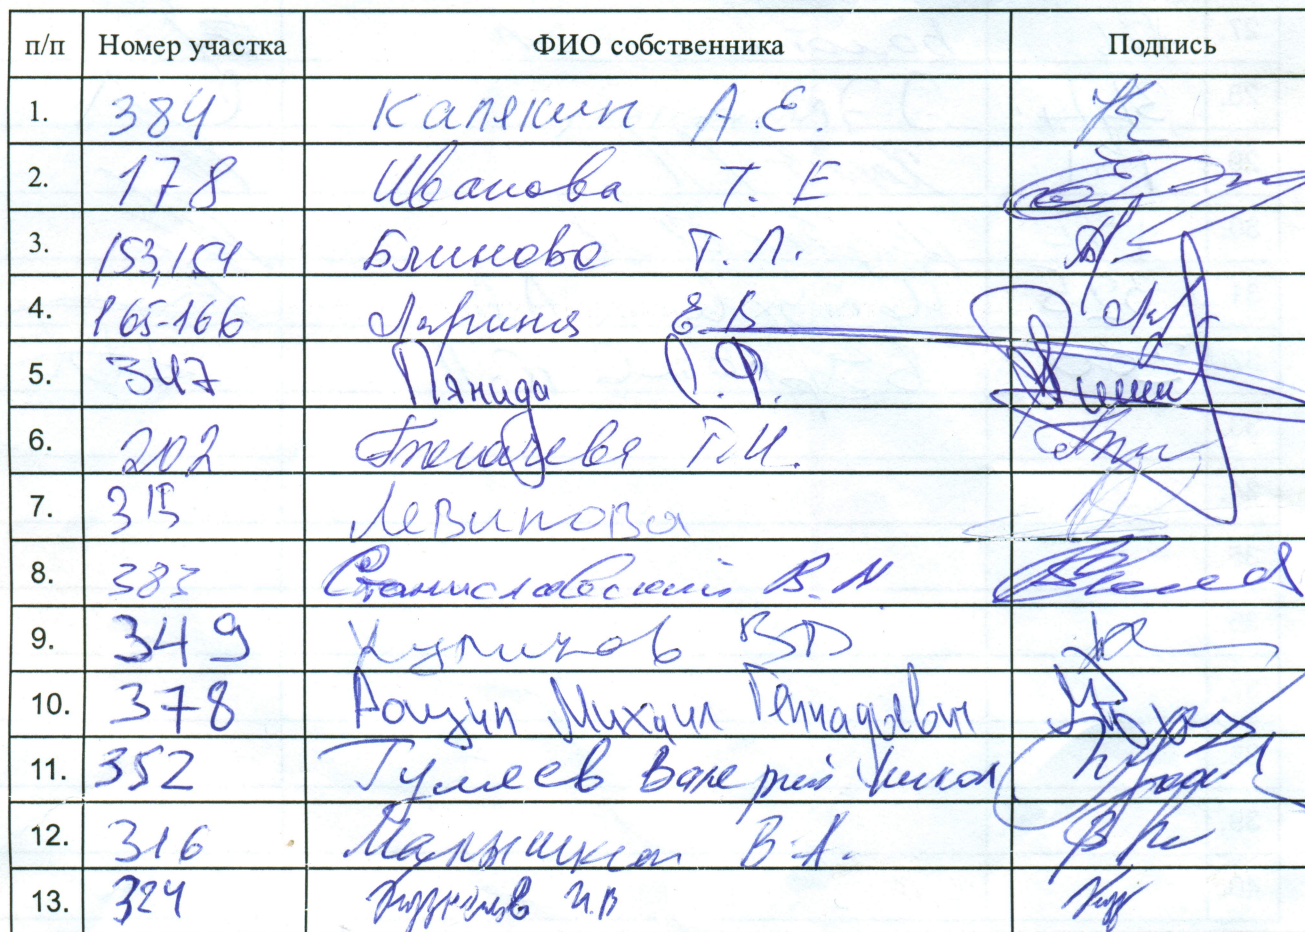 п/п Номер участка ФИО собственника Подпись
1. 384 Калякин А.Е.
2. 178 Иванова Т. Е
3. 153,154 Блинова Т.Л.
4. 165-166 Ларина Е В
5. 347 Пянида С.Ф.
6. 202 Т.И.
7. 315 Левинова
8. 383 Станиславский В.Н
9. 349 Куликов ВВ
10. 378 Рощин Михаил Геннадьевич
11. 352 Гуляев Валерий Никол
12. 316 Малышкин В.А.
13. 324